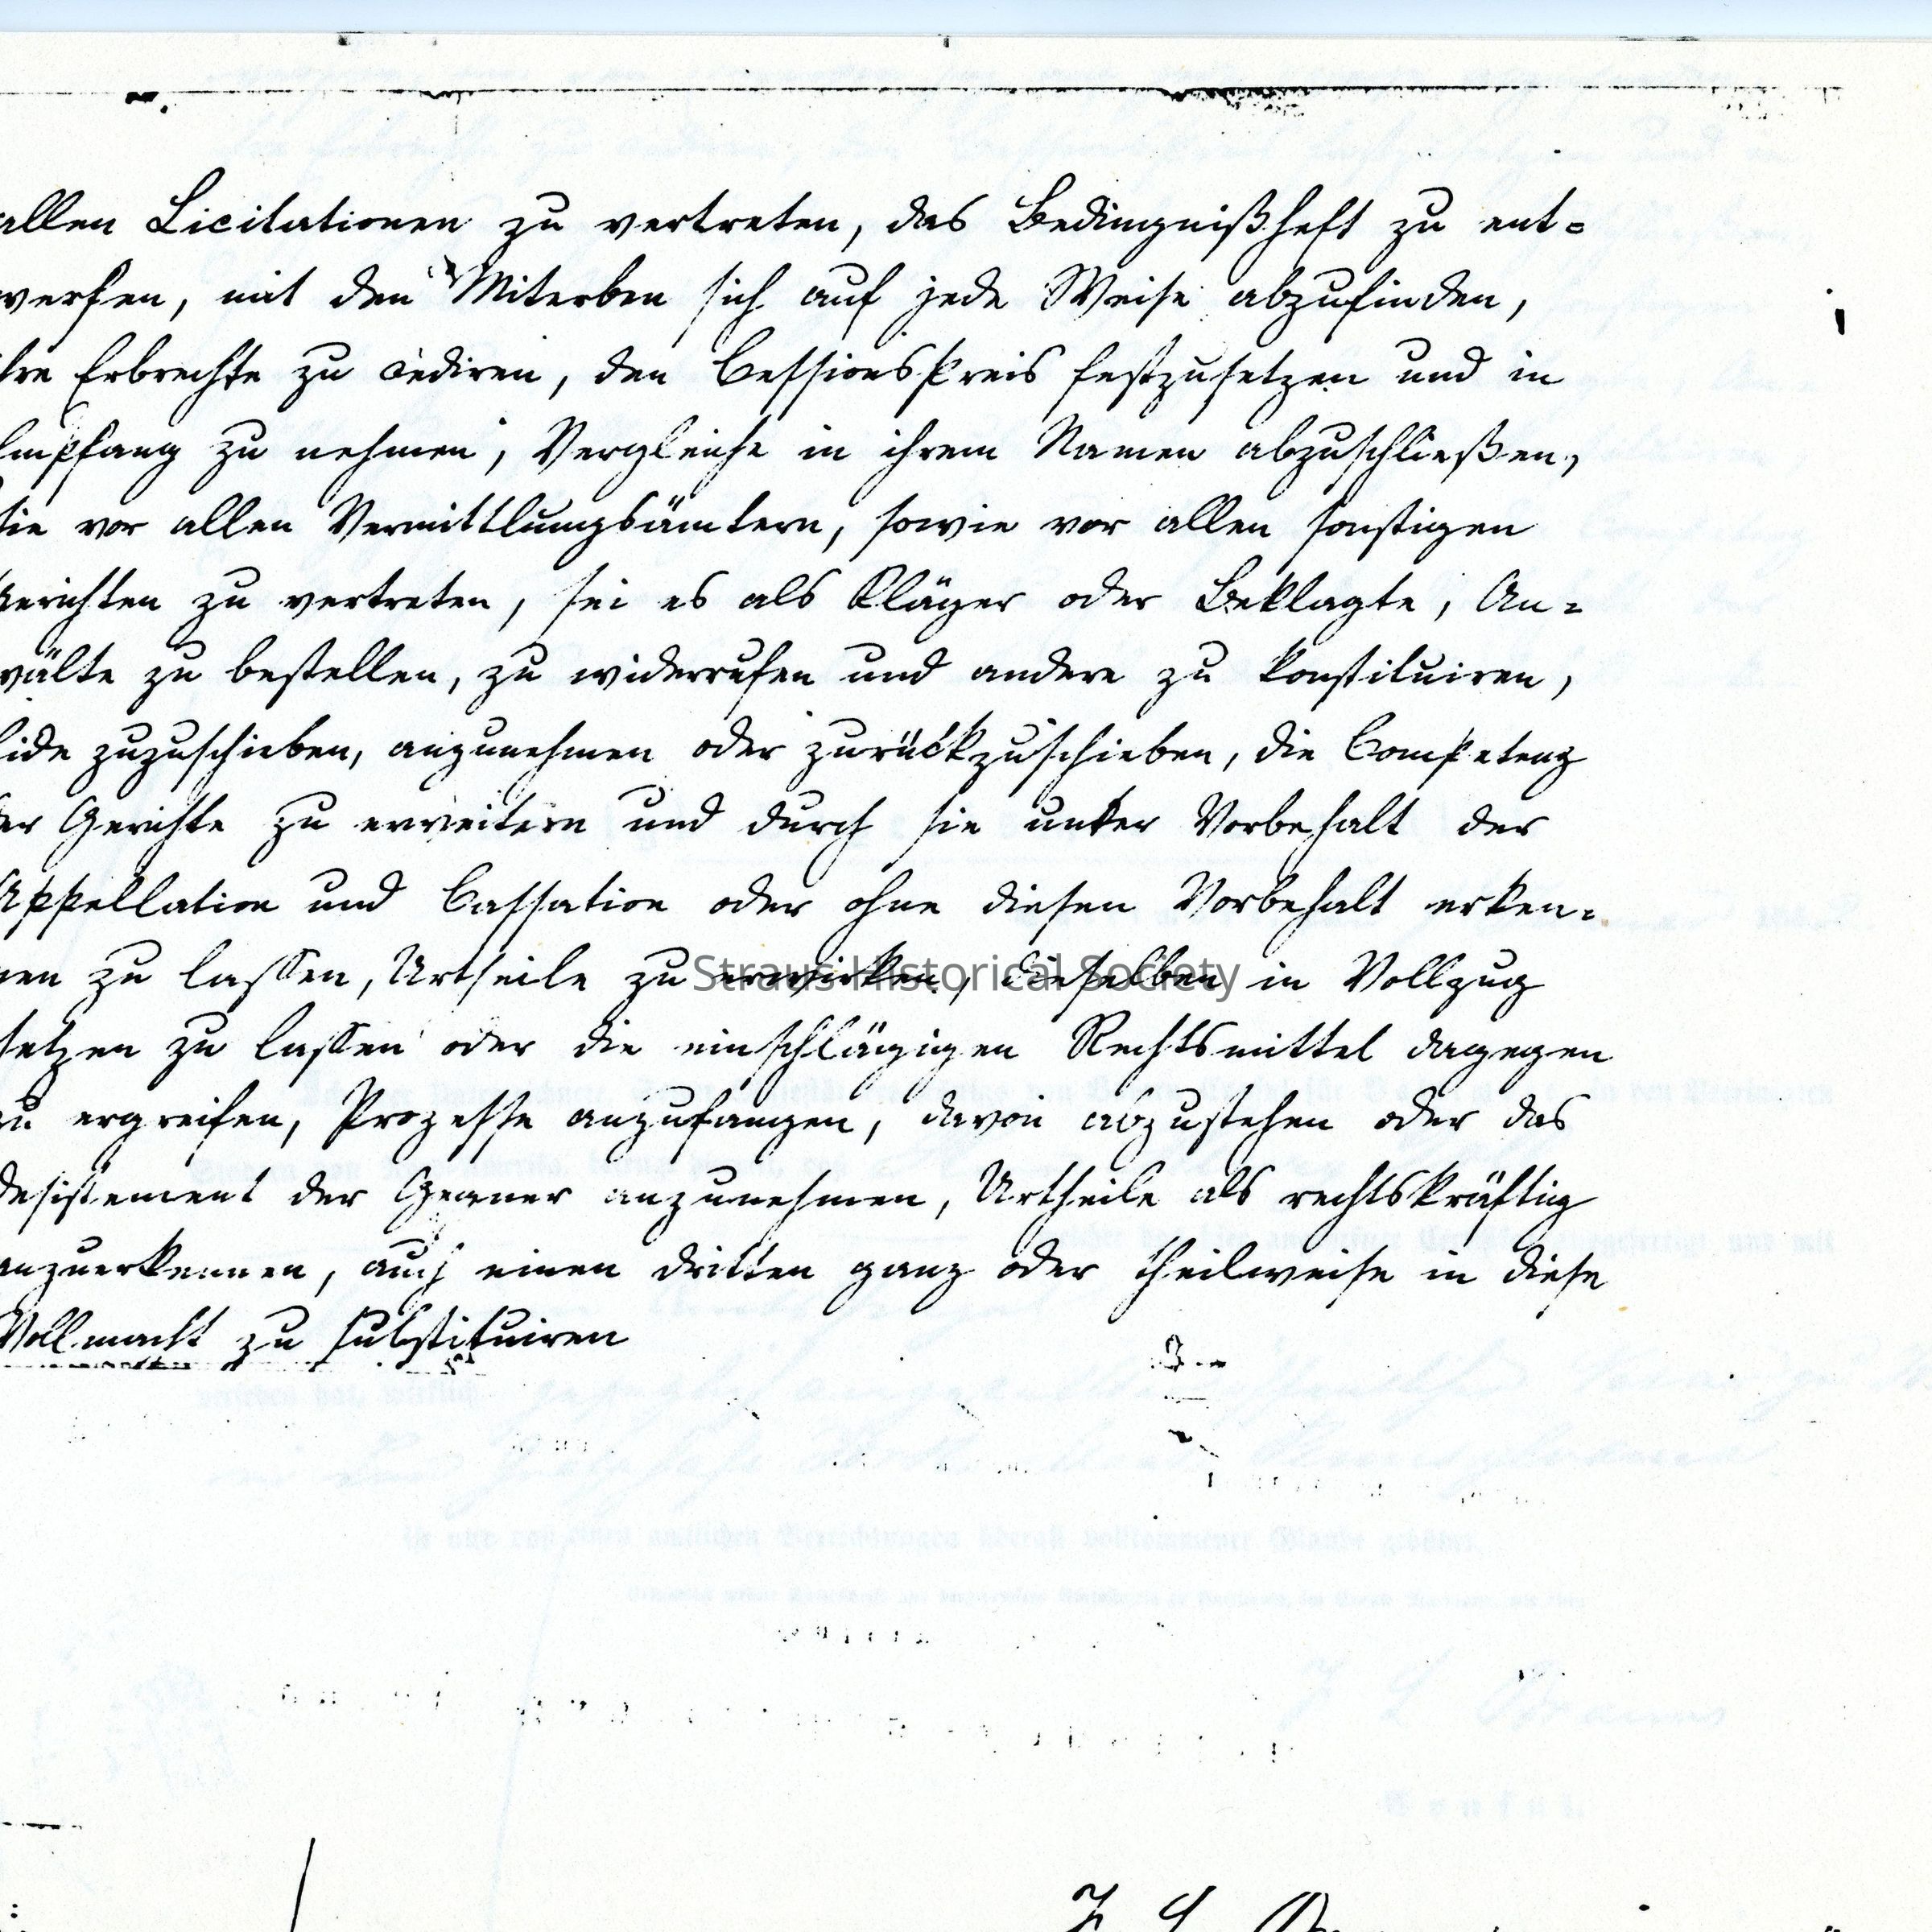 allen Licitationen zu vertreten, das Bedingnißheft zu ent=
werfen, mit den Miterben sich auf jede Weise abzufinden,
ihre Erbrechte zu cediren, den Cessionspreis festzusetzen und in
Empfang zu nehmen, Vergleiche in ihrem Namen abzuschließen,
sie vor allen Vermittlungsämtern, sowie vor allen sonstigen
Gerichten zu vertreten, sei es als Kläger oder Beklagte, An=
wälte zu bestellen, zu widerrufen und andere zu konstituiren,
Eide zuzuschieben, anzunehmen oder zurückzuschieben, die Competenz
der Gerichte zu erweitern und durch sie unter Vorbehalt der
Appellation und Cassation oder ohne diesen Vorbehalt erken=
nen zu lassen, Urtheile zu erwirken, dieselben in Vollzug
Straus Historical Society
setzen zu lassen oder die einschlägigen Rechtsmittel dagegen
zu ergreifen, Prozesse anzufangen, davon abzustehen oder das
desistement der Gegner anzunehmen, Urtheile als rechtskräftig
anzuerkennen, auch einen dritten ganz oder theilweise in diese
Vollmacht zu substituiren